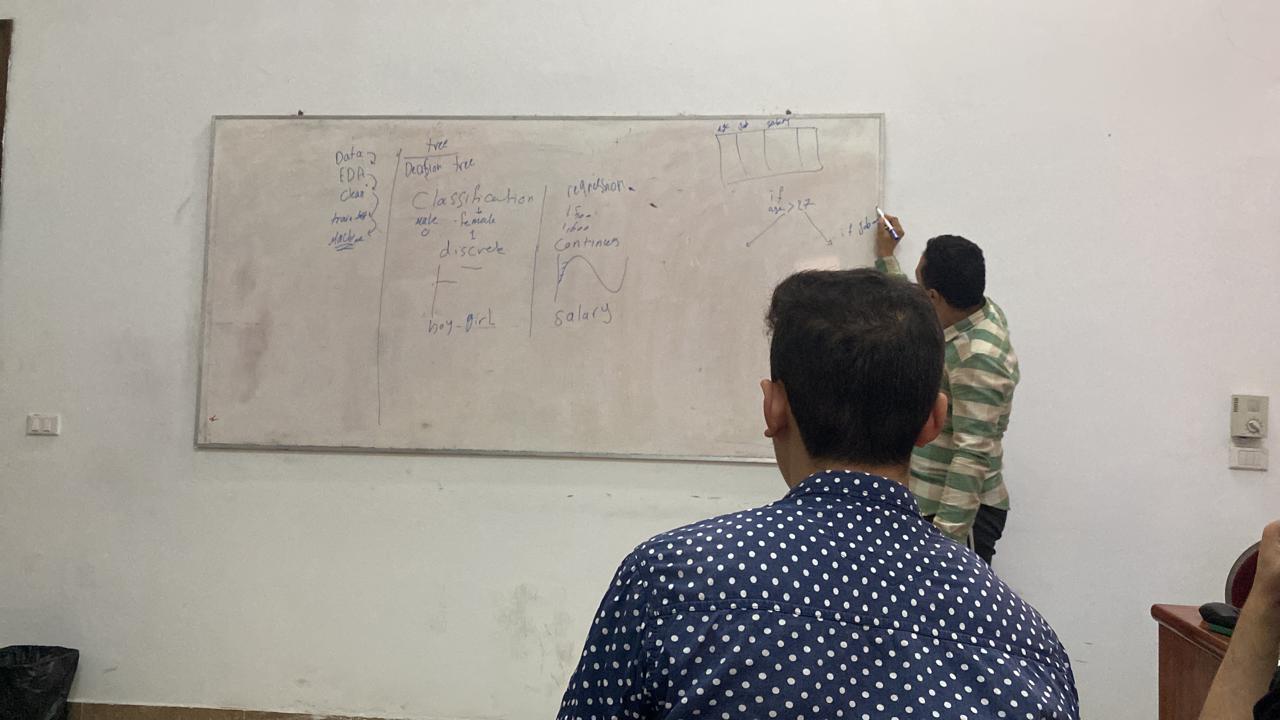 Data
EDA
Clean
Machine
tree
Decision tree
Classification
male - female
0 1
discrete
boy - girl
regression
Continues
salary
age Job salary
if
age > 27
if Job